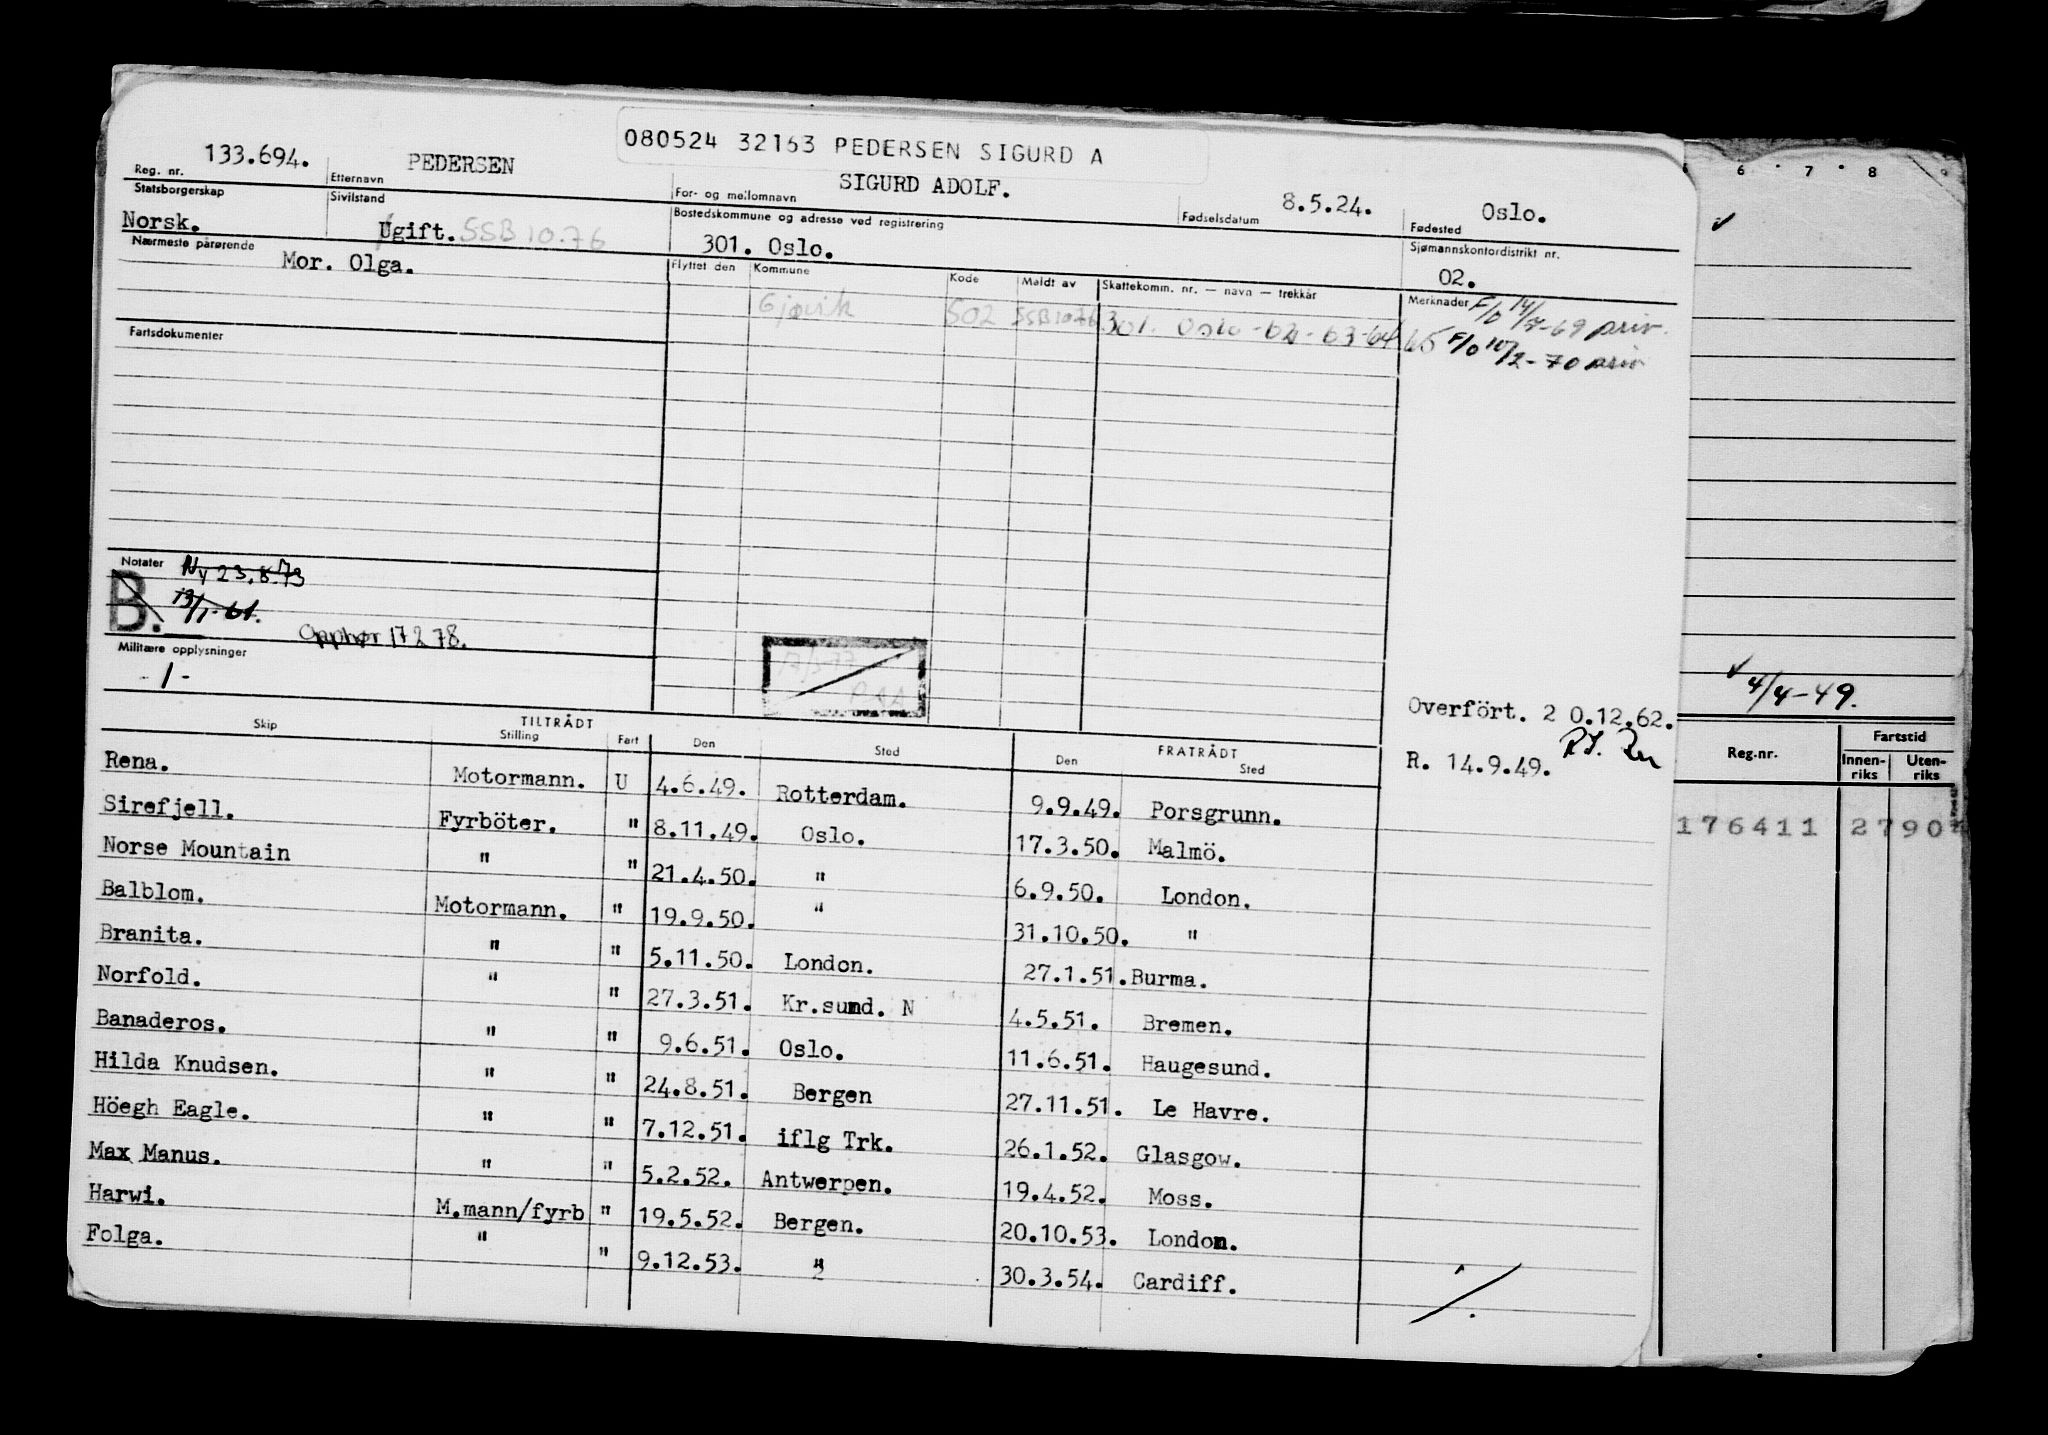 080524 32163 PEDERSEN SIGURD A
Reg. nr. 133.694. Etternavn PEDERSEN For- og mellomnavn SIGURD ADOLF. Fødselsdatum 8.5.24. Fødested Oslo.
Statsborgerskap Norsk. Sivilstand Ugift. SSB 10.76 Bostedskommune og adresse ved registrering 301. Oslo. Sjømannskontordistrikt nr. 02.
Nærmeste pårørende Mor. Olga.
Flyttet den Kommune Kode Meldt av Skattekomm. nr. — navn — trekkår Merknader F/0 14/7-69 priv.
Gjøvik 502 SSB 10.76 301. Oslo -62-63-64 65 F/0 10/2-70 priv
Fartsdokumenter
Notater Ny 23.8.73
B. 13/1-61.
Opphør 17 2 78.
Militære opplysninger
-1-
Overfört. 2 0.12.62.
R. 14.9.49.
TILTRÅDT FRATRÅDT
Skip Stilling Fart Den Sted Den Sted
Rena. Motormann. U 4.6.49. Rotterdam. 9.9.49. Porsgrunn.
Sirefjell. Fyrböter. " 8.11.49. Oslo. 17.3.50. Malmö.
Norse Mountain " " 21.4.50. " 6.9.50. London.
Balblom. Motormann. " 19.9.50. " 31.10.50. "
Branita. " " 5.11.50. London. 27.1.51. Burma.
Norfold. " " 27.3.51. Kr.sund. N 4.5.51. Bremen.
Banaderos. " " 9.6.51. Oslo. 11.6.51. Haugesund.
Hilda Knudsen. " " 24.8.51. Bergen 27.11.51. Le Havre.
Höegh Eagle. " " 7.12.51. iflg Trk. 26.1.52. Glasgow.
Max Manus. " " 5.2.52. Antwerpen. 19.4.52. Moss.
Harwi. M.mann/fyrb " 19.5.52. Bergen. 20.10.53. London.
Folga. " " 9.12.53. " 30.3.54. Cardiff.
6 • 7 • 8
4/4-49.
Reg.nr. Fartstid
Innen-riks Uten-riks
176411 2790